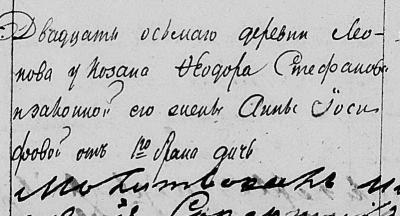 Двадцать осьмаго деревни Лео-
нова у козака Ѳеодора Стефанов
изаконной его жены Анны Іоси
фовой отъ 1го брака дичь
Молитвовалъ и